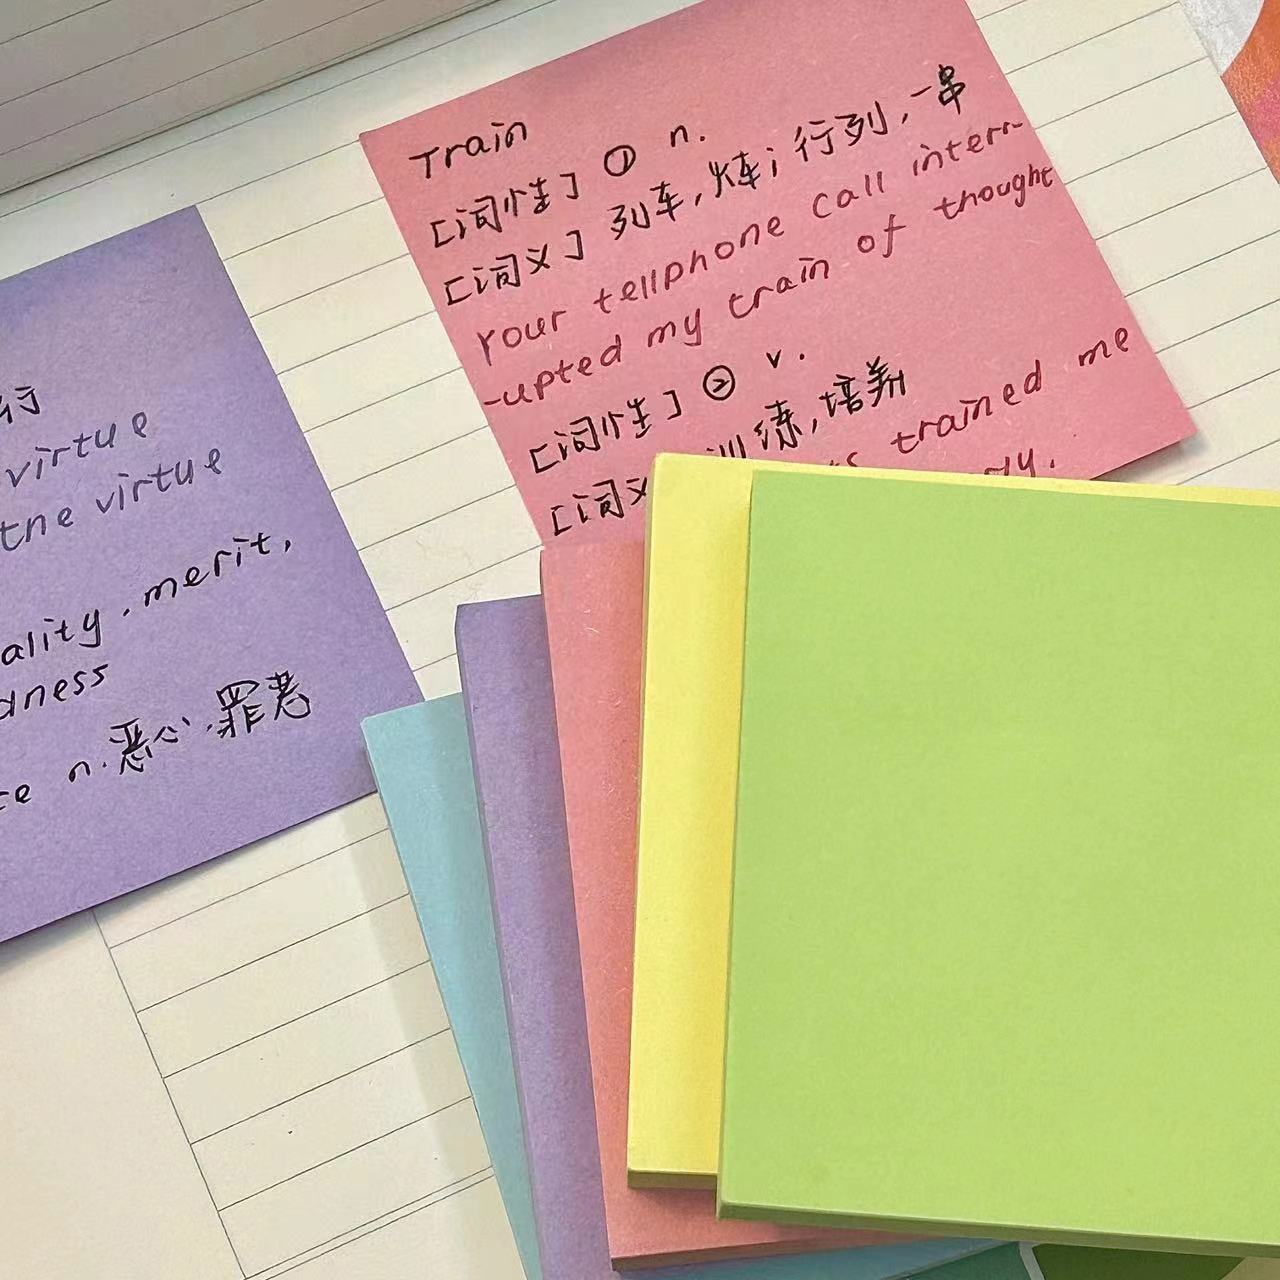 Train
[词性] ① n.
[词义] 列车,火车;行列,一串
Your tellphone call interr-
-upted my train of thought
[词性] ② v.
[词义 训练,培养
trained me
行
virtue
the virtue
ality.merit,
dness
ce n.恶心.罪恶